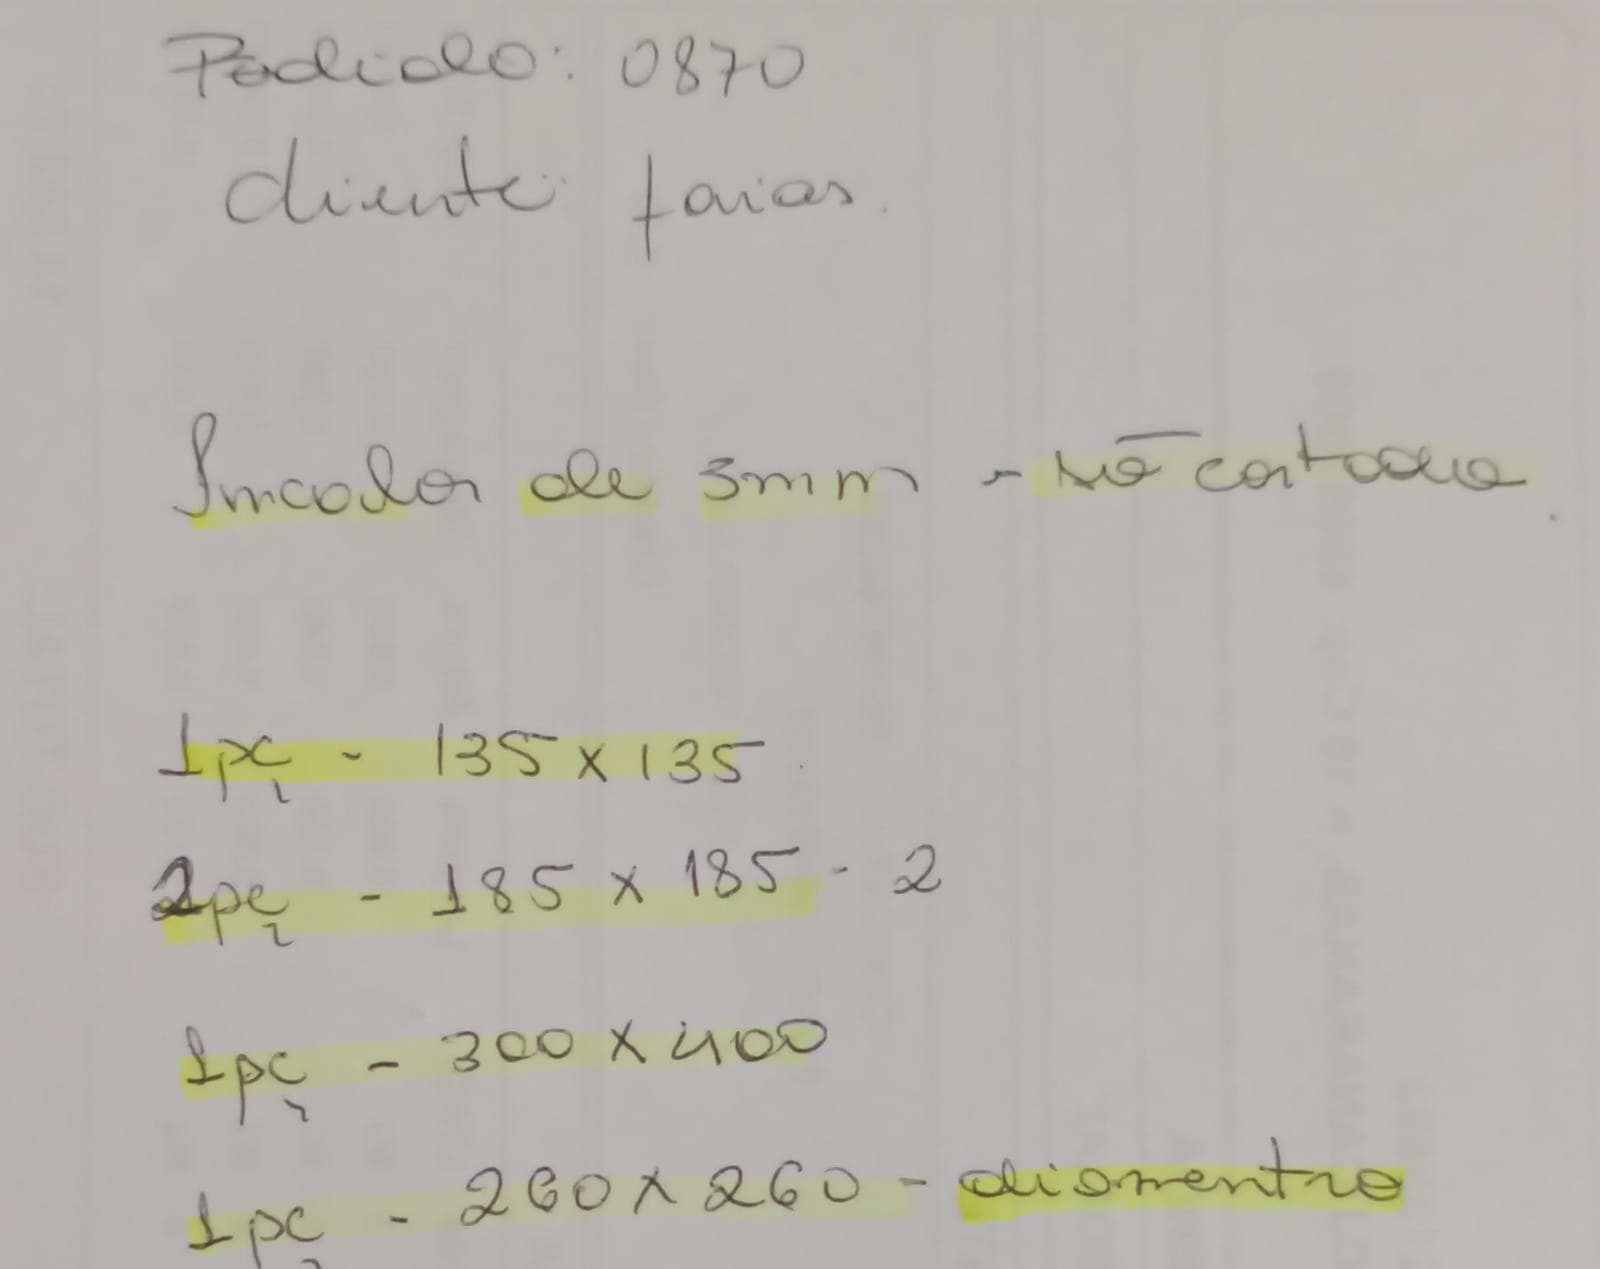 Pedido: 0870
cliente farias.
Incolor de 3mm - Nõ cortado.
1pç - 135 x 135
2pç - 185 x 185 - 2
1pç - 300 x 400
1pç - 260 x 260 - diamentro